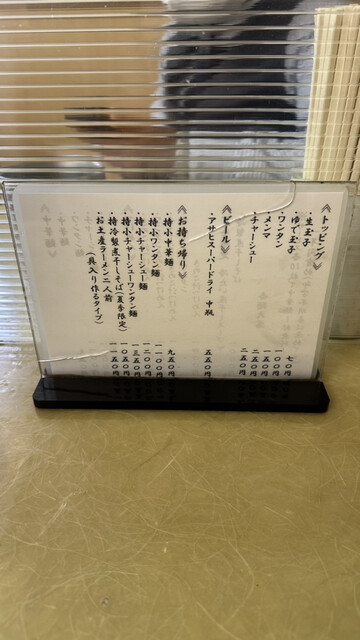 《トッピング》
・生玉子 七〇円
・ゆで玉子 一〇〇円
・ワンタン 一五〇円
・メンマ 二五〇円
・チャーシュー 二五〇円
《ビール》
・アサヒスーパードライ 中瓶 五五〇円
《お持ち帰り》
・持小中華麺 九五〇円
・持小ワンタン麺 一一〇〇円
・持小チャーシュー麺 一二〇〇円
・持小チャーシューワンタン麺 一三五〇円
・持冷製煮干しそば(夏季限定) 一〇五〇円
・お土産ラーメン二人前 一一五〇円
(具入り作るタイプ)